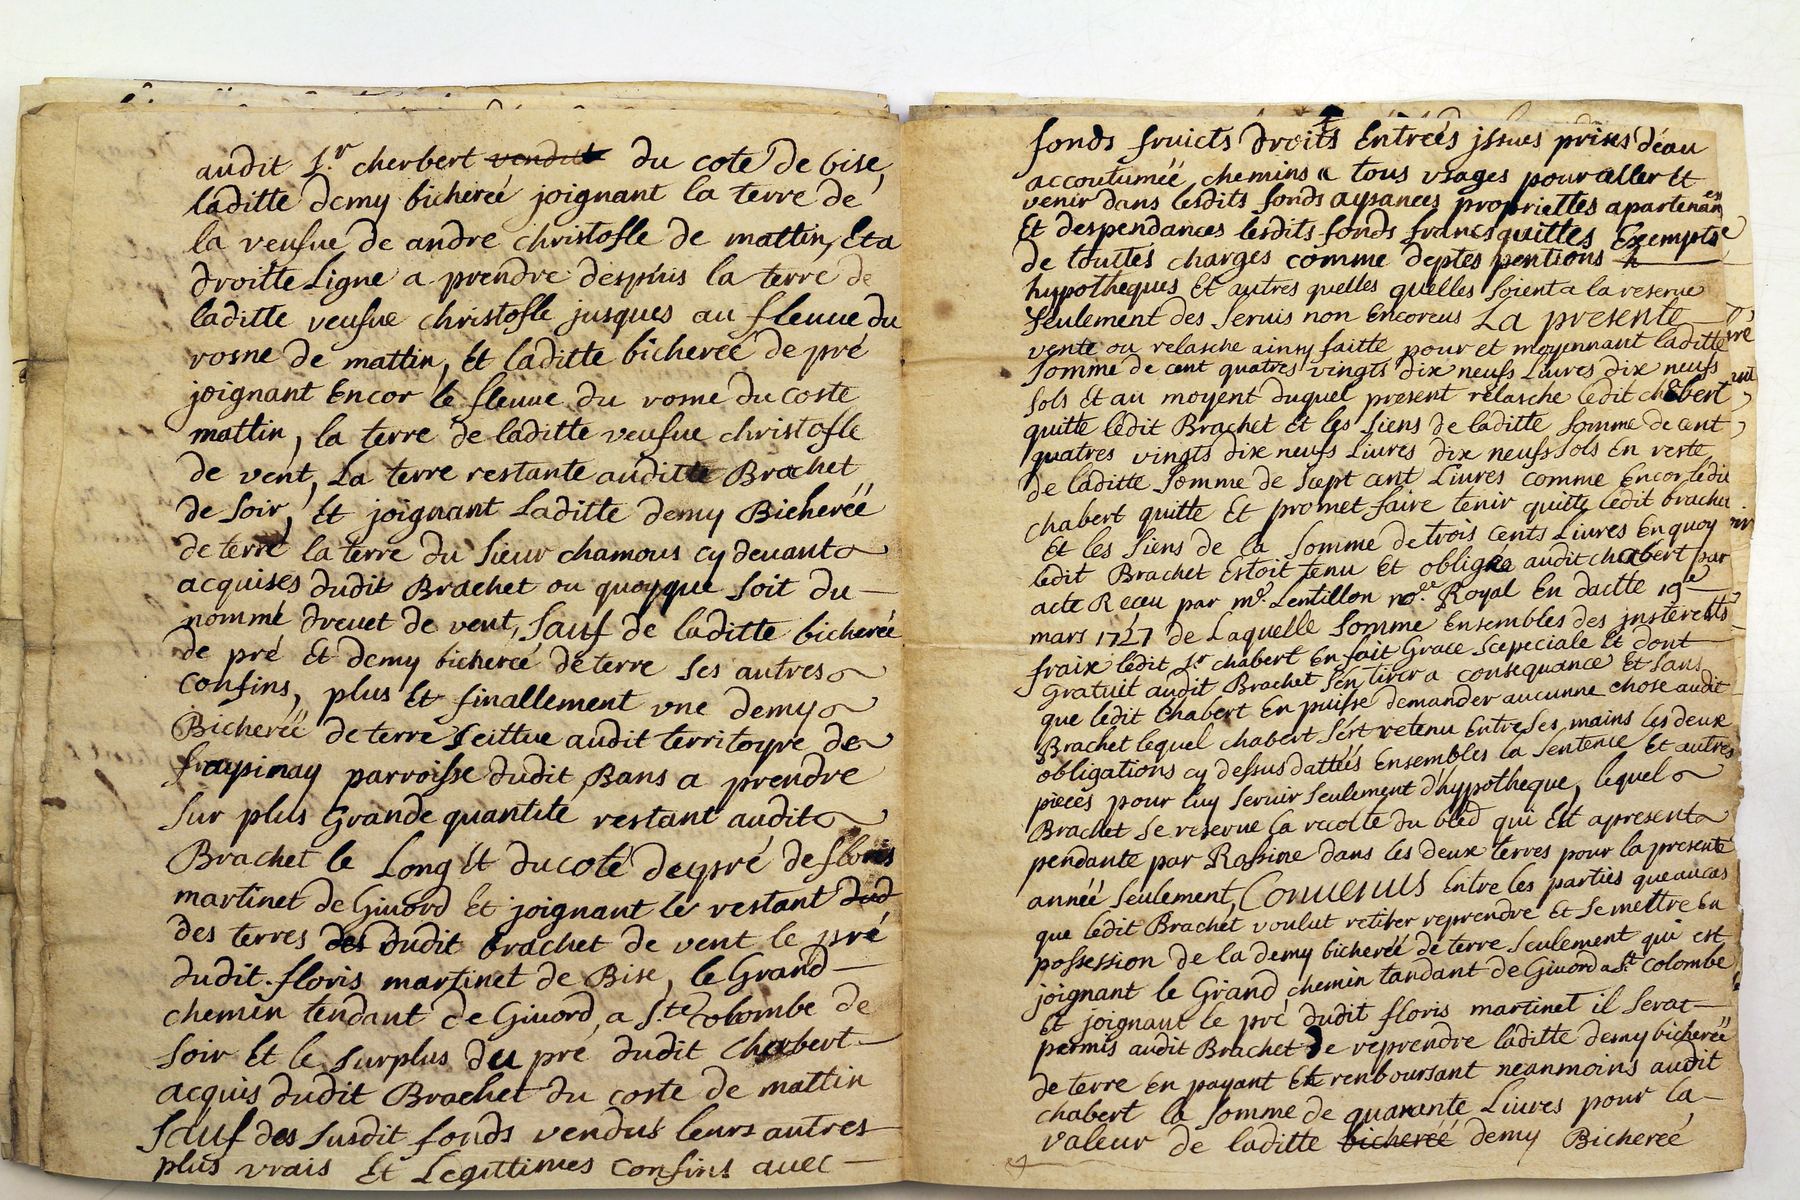 audit S.r cherbert vendut du cote de bise,
laditte demy bichereé joignant la terre de
la veufue de andre christofle de mattin, Et a
droitte Ligne a prendre despuis la terre de
laditte veufue christofle jusques au fleuue du
rosne de mattin, Et laditte bichereé de pré
joignant Encor le fleuue du rosne du coste
mattin, la terre de laditte veufue christofle
de vent, La terre restante auditte Brachet
de soir, Et joignant Laditte demy Bichereé
de terre la terre du sieur chamous cy deuant
acquises dudit Brachet ou quoyque soit du
nommé dreuet de vent, Sauf de laditte bichereé
de pré Et demy bichereé de terre ses autres
confins, plus Et finallement vne demy
Bichereé de terre scittue audit territoyre de
frapinay parroisse dudit Bans a prendre
sur plus Grande quantite restant audit
Brachet le Long Et du coté de pré de floris
martinet de Giuord Et joignant le restant dud
des terres des dudit brachet de vent le pré
dudit floris martinet de Bise, le Grand
chemin tendant de Giuord, a S.te Colombe de
soir Et le surplus du pré dudit Cherbert
acquis dudit Brachet du coste de mattin
Sauf des susdit fonds vendus leurs autres
plus vrais Et Legittimes confins auec
fonds fruicts droits Entreés jssues prises d'eau
accoutumeé chemins & tous vsages pour aller Et
venir dans lesdits fonds aysances propriettes apartenances
Et despendances lesdits fonds francs quittes Exempts
de touttes charges comme deptes pentions
hypotheques Et autres quelles quelles soient a la reserue
seulement des seruis non Encoreus La presente
vente ou relasche ainsy faitte pour et moyennant laditte
somme de cent quatres vingts dix neufs Liures dix neufs
sols Et au moyent duquel present relasche ledit chabert
quitte ledit Brachet Et les siens de laditte somme de cent
quatres vingts dix neufs Liures dix neufs sols En reste
de laditte somme de sept cent Liures comme Encor ledit
chabert quitte Et promet faire tenir quitte ledit brachet
Et les siens de la somme de trois cents Liures En quoy
ledit Brachet Estoit tenu Et obligé audit chabert par
acte Receu par m.e Lentillon no.re Royal En dactte 19e
mars 1727 de Laquelle somme Ensembles des jnsterests
fraix ledit s.r chabert En fait Grace scepeciale Et dont
gratuit audit Brachet sen tirer a consequance Et sans
que ledit Chabert En puisse demander aucunne chose audit
Brachet lequel chabert sést retenu Entre ses mains les deux
obligations cy dessus datteés Ensembles la sentence Et autres
pieces pour luy seruir seulement d'hypotheque, lequel
Brachet se reserue la recolte du bled qui Est apresent
pendante par Rassine dans les deux terres pour la presente
anneé seulement, Conuenus Entre les parties que aucas
que ledit Brachet voulut retirer reprendre Et se mettre En
possession de la demy bichereé de terre seulement qui est
joignant le Grand chemin tandant de Giuord a St colombe
Et joignant le pré dudit floris martinet il serat
permis audit Brachet de reprendre laditte demy bichereé
de terre En payant Et renboursant neanmoins audit
chabert la somme de quarante Liures pour la
valeur de laditte bichereé demy Bichereé